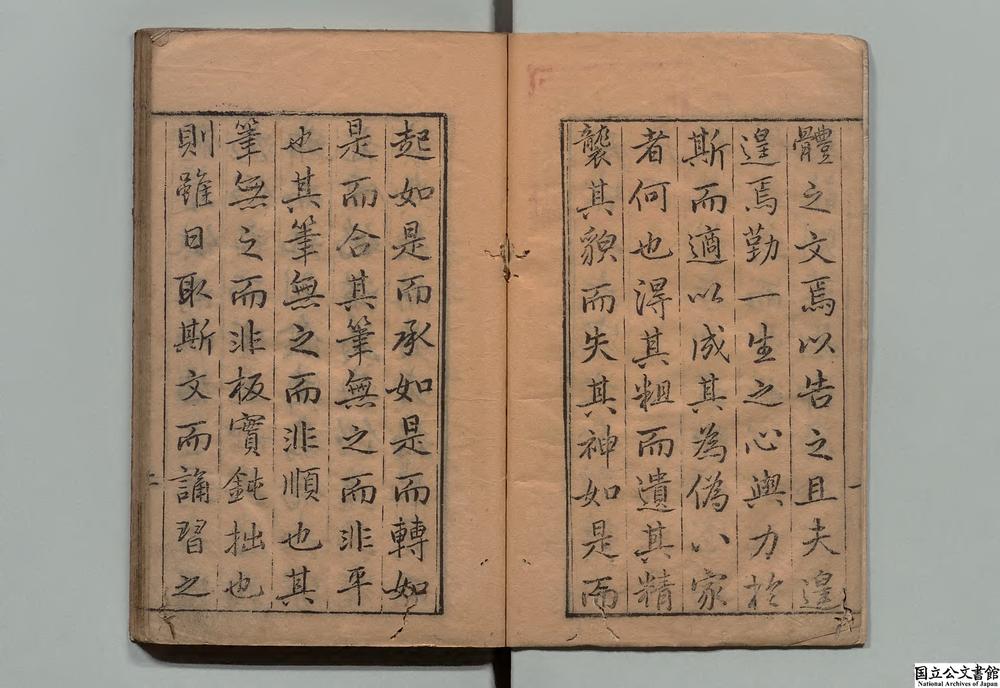 體之文焉以告之且夫遑
遑焉勤一生之心與力於
斯而適以成其為偽八家
者何也得其粗而遺其精
襲其貌而失其神如是而
一
起如是而承如是而轉如
是而合其筆無之而非平
也其筆無之而非順也其
筆無之而非板實鈍拙也
則雖日取斯文而誦習之
二
国立公文書館
National Archives of Japan